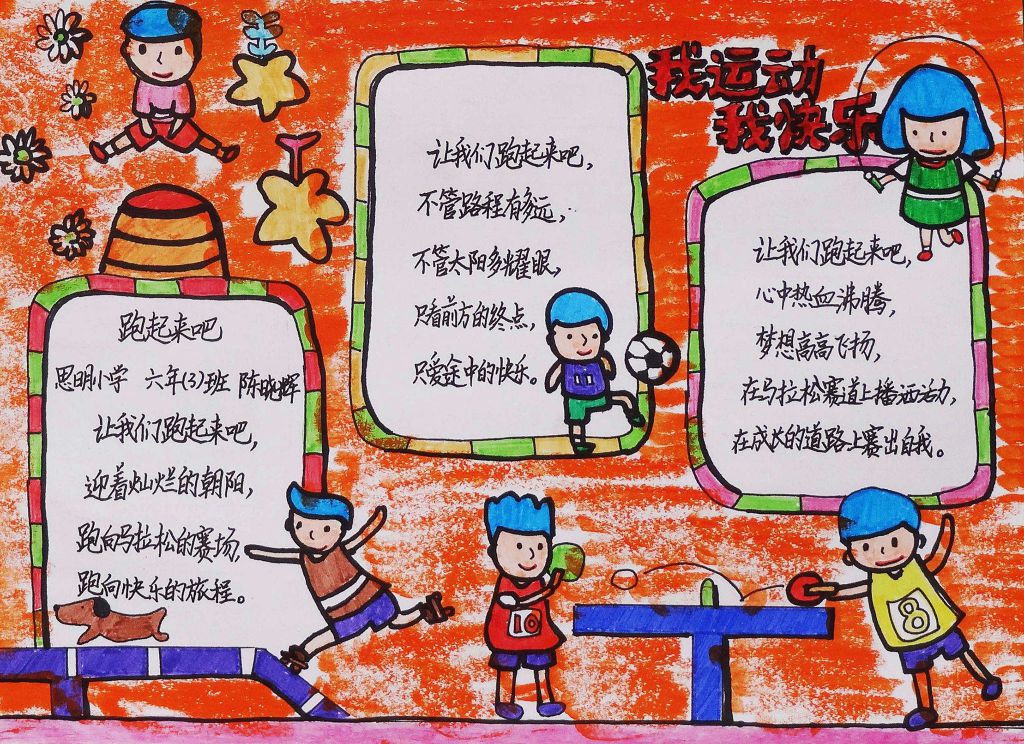 我运动
我快乐
跑起来吧
思明小学 六年(3)班 陈晓辉
让我们跑起来吧，
迎着灿烂的朝阳，
跑向马拉松的赛场，
跑向快乐的旅程。
让我们跑起来吧，
不管路程有多远，
不管太阳多耀眼，
只看前方的终点，
只爱途中的快乐。
让我们跑起来吧，
心中热血沸腾，
梦想高高飞扬，
在马拉松赛道上播洒活力，
在成长的道路上赛出自我。
10
8